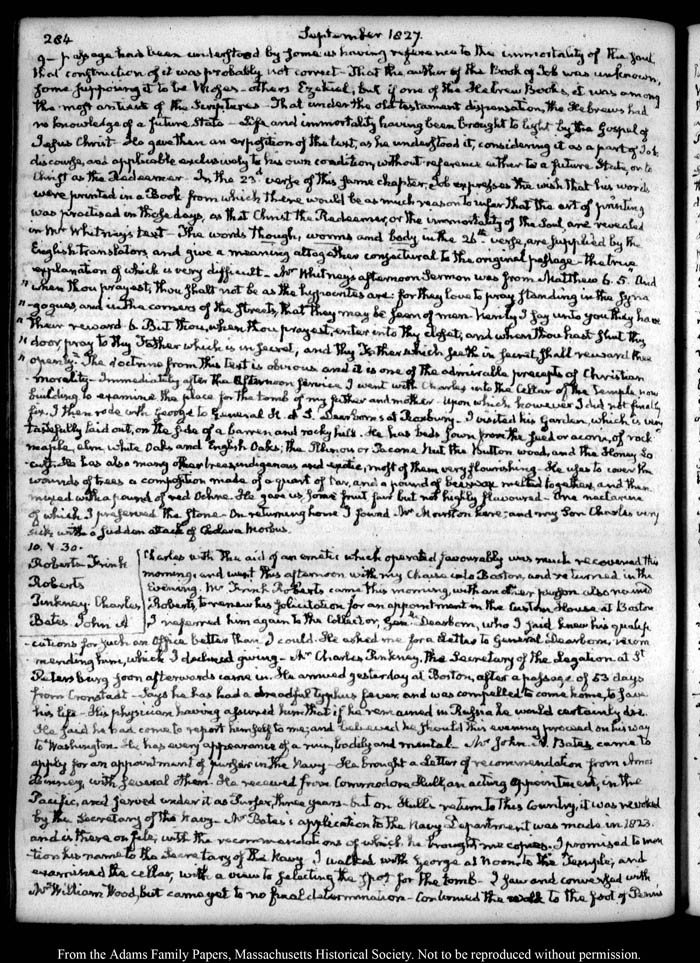 284 September 1827.
9— passage had been understood by some as having reference to the immortality of the soul
that construction of it was probably not correct— That the author of the Book of Job was unknown,
some supposing it to be Moses— others Ezekiel, but if one of the Hebrew Books, it was among
the most antient of the Scriptures— That under the old testament dispensation, the Hebrews had
no knowledge of a future State— Life and immortality having been brought to light by the Gospel of
Jesus Christ— He gave then an exposition of the text, as he understood it, considering it as a part of Job's
discourse, and applicable exclusively to his own condition, without reference either to a future State, or to
Christ as the Redeemer— In the 23d verse of this same chapter, Job expresses the wish that his words
were printed in a Book from which there would be as much reason to infer that the art of printing
was practised in those days, as that Christ the Redeemer, or the immortality of the Soul, are revealed
in Mr Whitney's text— The words though, worms and body in the 26th verse, are supplied by the
English translators, and give a meaning altogether conjectural to the original passage— the true
explanation of which is very difficult— Mr Whitney's afternoon Sermon was from Matthew 6. 5. "And
" when thou prayest, thou shalt not be as the hypocrites are: for they love to pray standing in the Syna
" gogues, and in the corners of the Streets, that they may be seen of men. Verily I say unto you they have
" their reward 6. But thou, when thou prayest, enter into thy closet, and when thou hast shut thy
" door pray to thy Father which is in secret, and thy Father which seeth in secret, shall reward thee
" openly." The doctrine from this text is obvious and it is one of the admirable precepts of Christian
morality— Immediately after the afternoon service I went with Charles into the Cellar of the Temple now
building, to examine the place for the tomb of my father and mother— Upon which however I did not finally
fix. I then rode with George to General H. A. S. Dearborn's at Roxbury— I visited his Garden, which is very
tastefully laid out, on the side of a barren and rocky hill. He has beds sown from the seed or acorn, of rock
maple, elm, white Oaks and English Oaks; the Illinois or Pacane Nut the Button wood, and the Honey Lo
cust. He has also many other trees, indigenous and exotic, most of them very flourishing— He uses to cover the
wounds of trees a composition made of a quart of tar, and a pound of beeswax melted together, and then
mixed with a pound of red Ochre. He gave us some fruit fair but not highly flavoured— One nectarine
of which I preserved the stone— On returning home I found Mr Marston here; and my Son Charles very
sick with a sudden attack of Cholera Morbus.
10. V. 30.
Roberts Frink
Roberts
Pinkney. Charles,
Bates. John A
Charles with the aid of an emetic which operated favourably was much recovered this
morning; and went this afternoon with my Chaise into Boston, and returned in the
Evening. Mr Frink Roberts came this morning, with another person also named
Roberts, to renew his solicitation for an appointment in the Custom House at Boston
I referred him again to the Collector, Genl Dearborn, who I said knew his qualifi
cations for such an Office better than I could. He asked me for a Letter to General Dearborn, recom
mending him, which I declined giving— Mr Charles Pinkney, the Secretary of the Legation at St
Petersburg soon afterwards came in. He arrived yesterday at Boston, after a passage of 53 days
from Cronstadt— Says he has had a dreadful typhus fever and was compelled to come home, to save
his life— His physician having assured him that if he remained in Russia he would certainly die.
He said he had come to report himself to me; and believed he should this evening proceed on his way
to Washington. He has every appearance of a ruin, bodily and mental— Mr John A. Bates, came to
apply for an appointment of purser in the Navy— He brought a Letter of recommendation from Amos
Binney, with several others. He received from Commodore Hull, an acting appointment, in the
Pacific, and served under it as Purser, three years— but on Hull's return to this Country, it was revoked
by the Secretary of the Navy— Mr Bates's application to the Navy Department was made in 1823.
and is there on file; with the recommendations of which he brought me copies. I promised to men
tion his name to the Secretary of the Navy. I walked with George at Noon, to the Temple, and
examined the cellar, with a view to selecting the spot for the tomb— I saw and conversed with
Mr William Wood, but came yet to no final determination— Continued the walk to the foot of Penns
From the Adams Family Papers, Massachusetts Historical Society. Not to be reproduced without permission.